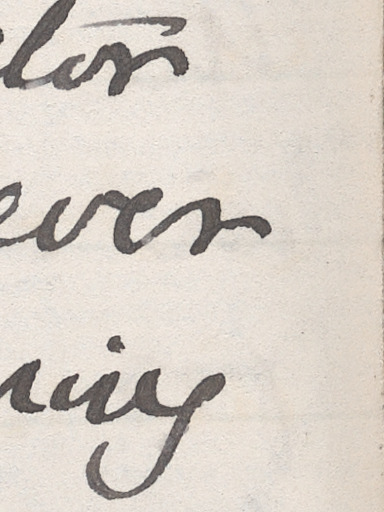 ctor
ever
ning